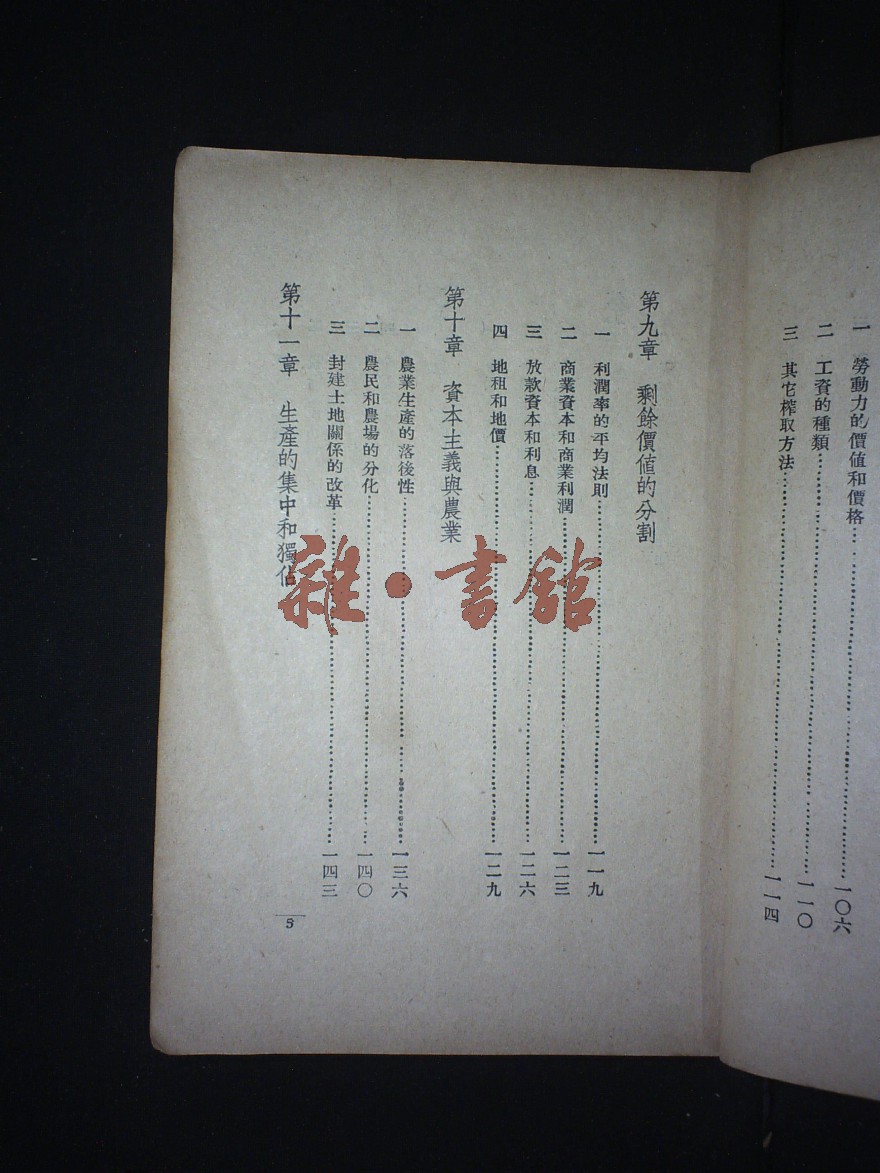 一 勞動力的價値和價格……一〇六
二 工資的種類……一一〇
三 其它榨取方法……一一四
第九章 剩餘價値的分割
一 利潤率的平均法則……一一九
二 商業資本和商業利潤……一二三
三 放款資本和利息……一二六
四 地租和地價……一二九
第十章 資本主義與農業
一 農業生產的落後性……一三六
二 農民和農場的分化……一四〇
三 封建土地關係的改革……一四三
第十一章 生產的集中和獨佔
5
雜·書館